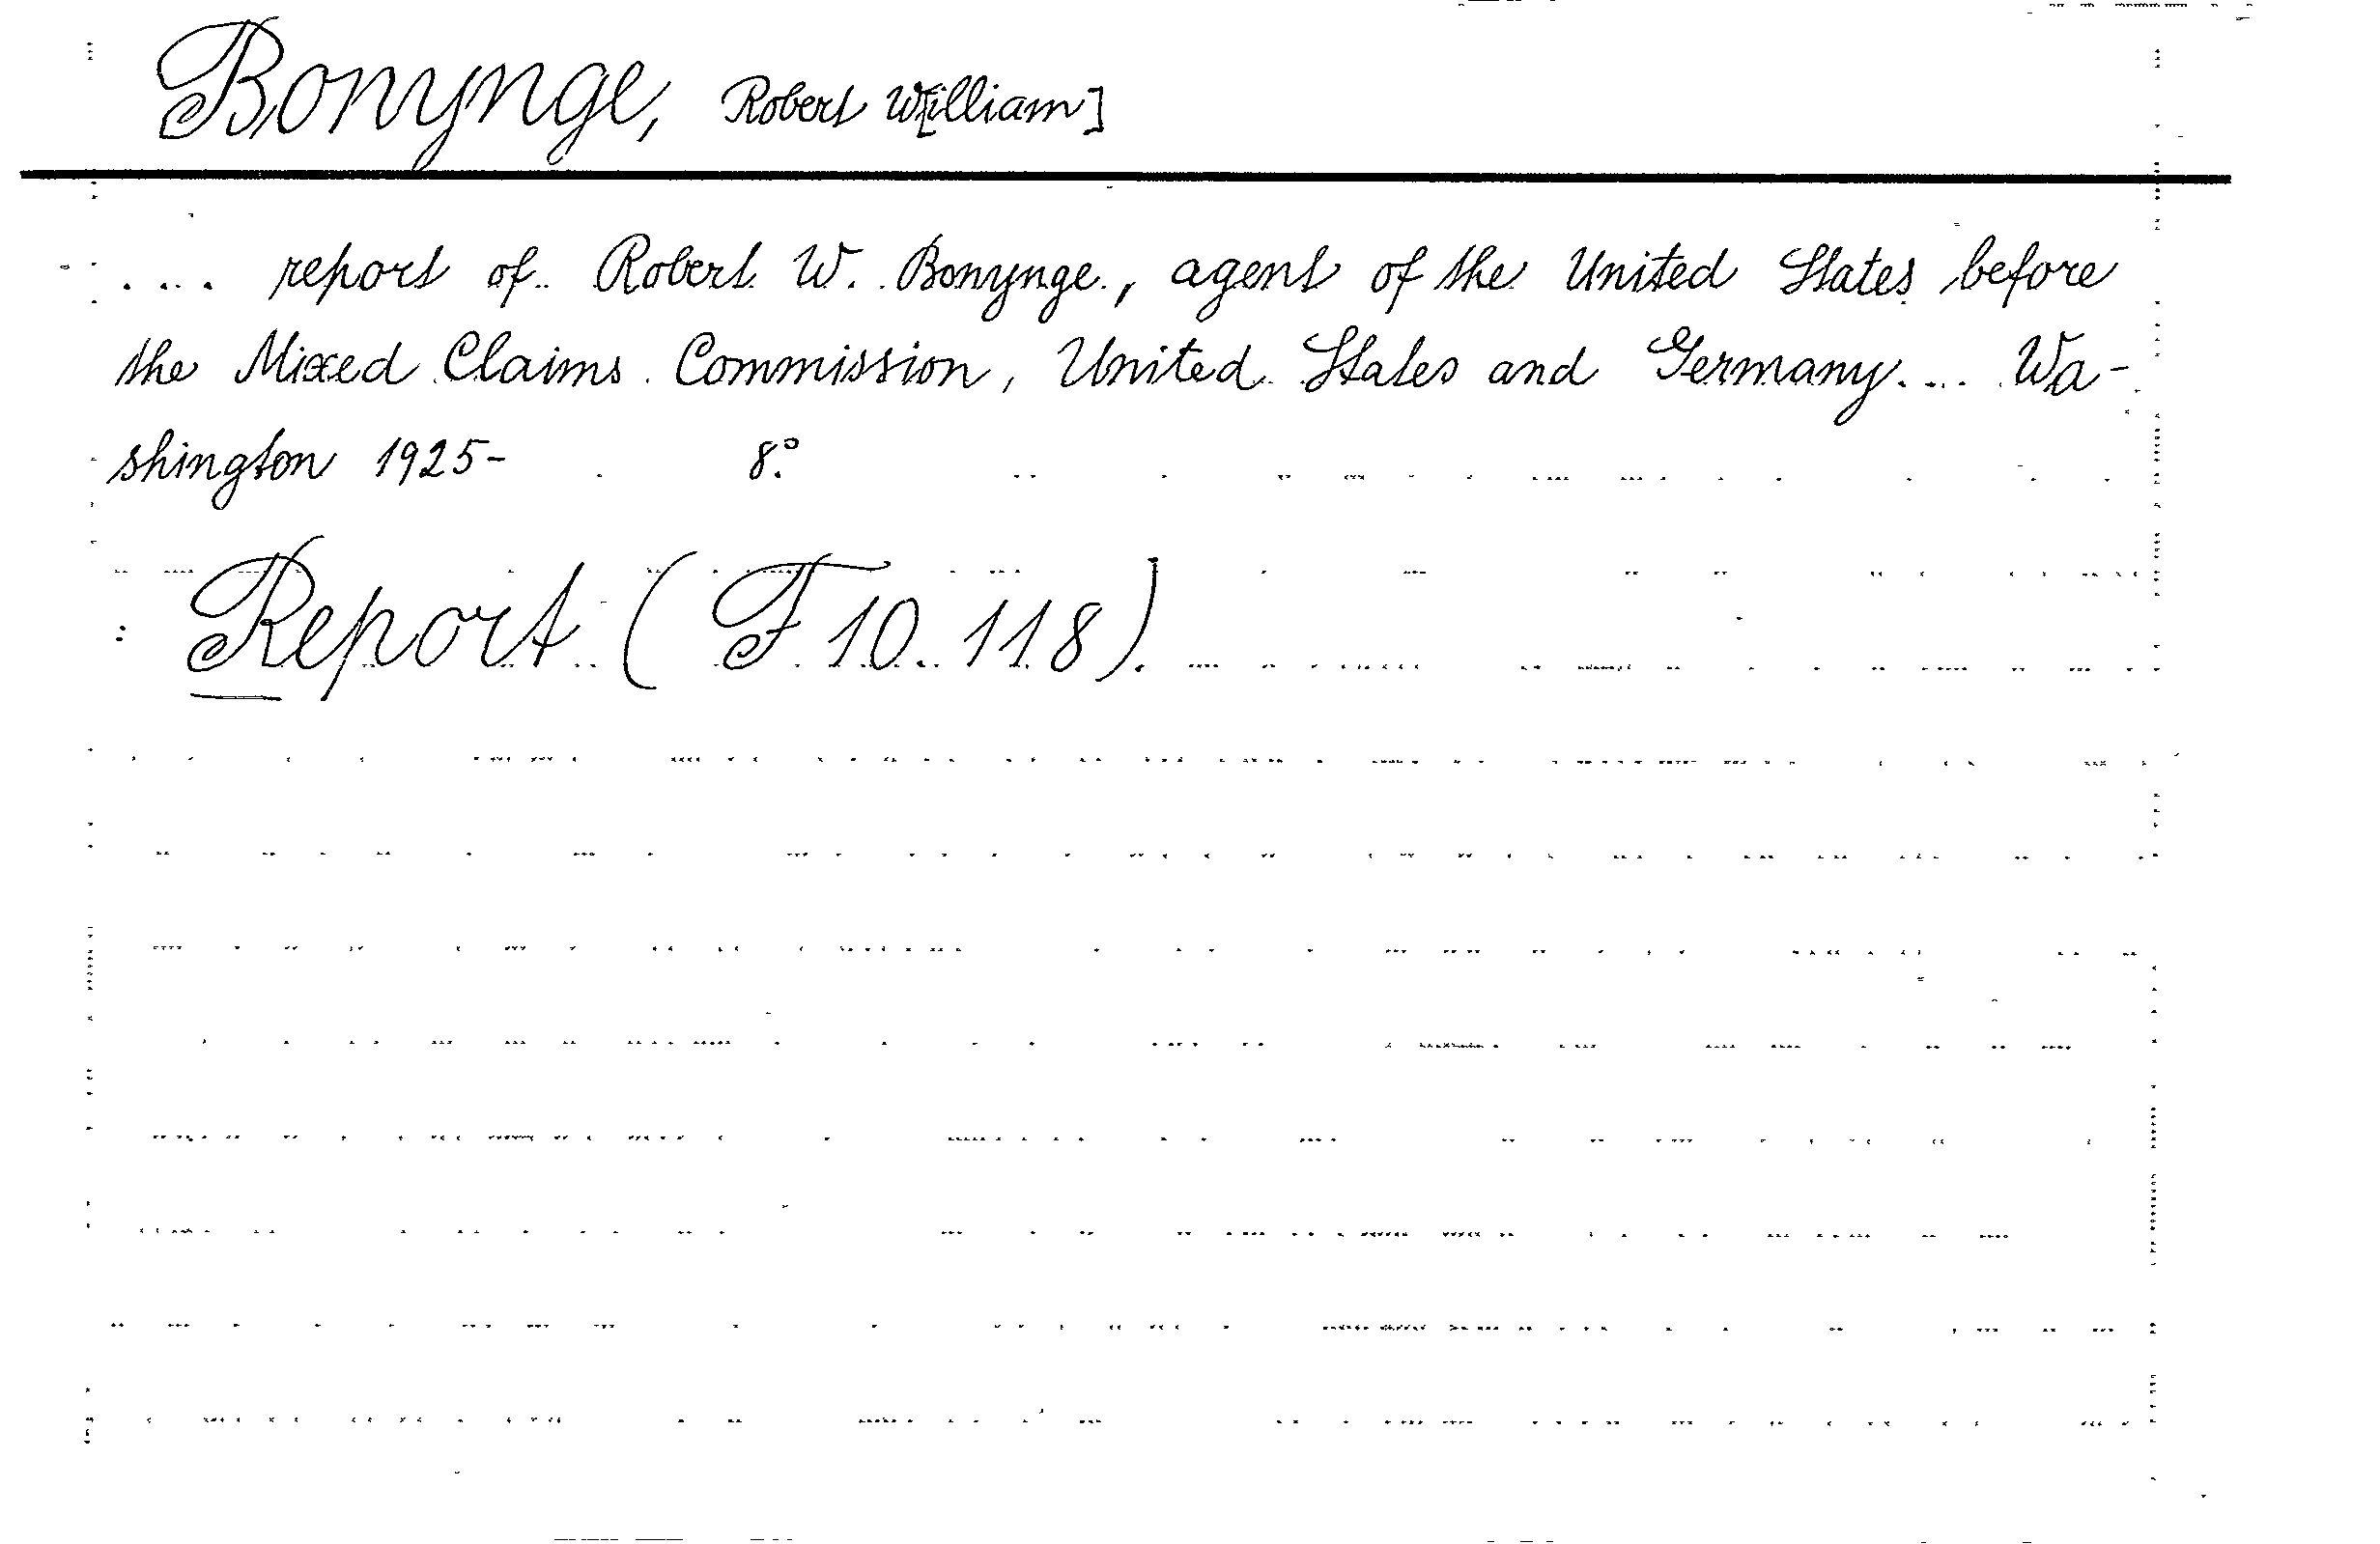 Bonynge, Robert W[illiam]
.... report of Robert W. Bonynge, agent of the United States before
the Mixed Claims Commission, United States and Germany.... Wa-
shington 1925- 8°.
: Report (F 10. 118).